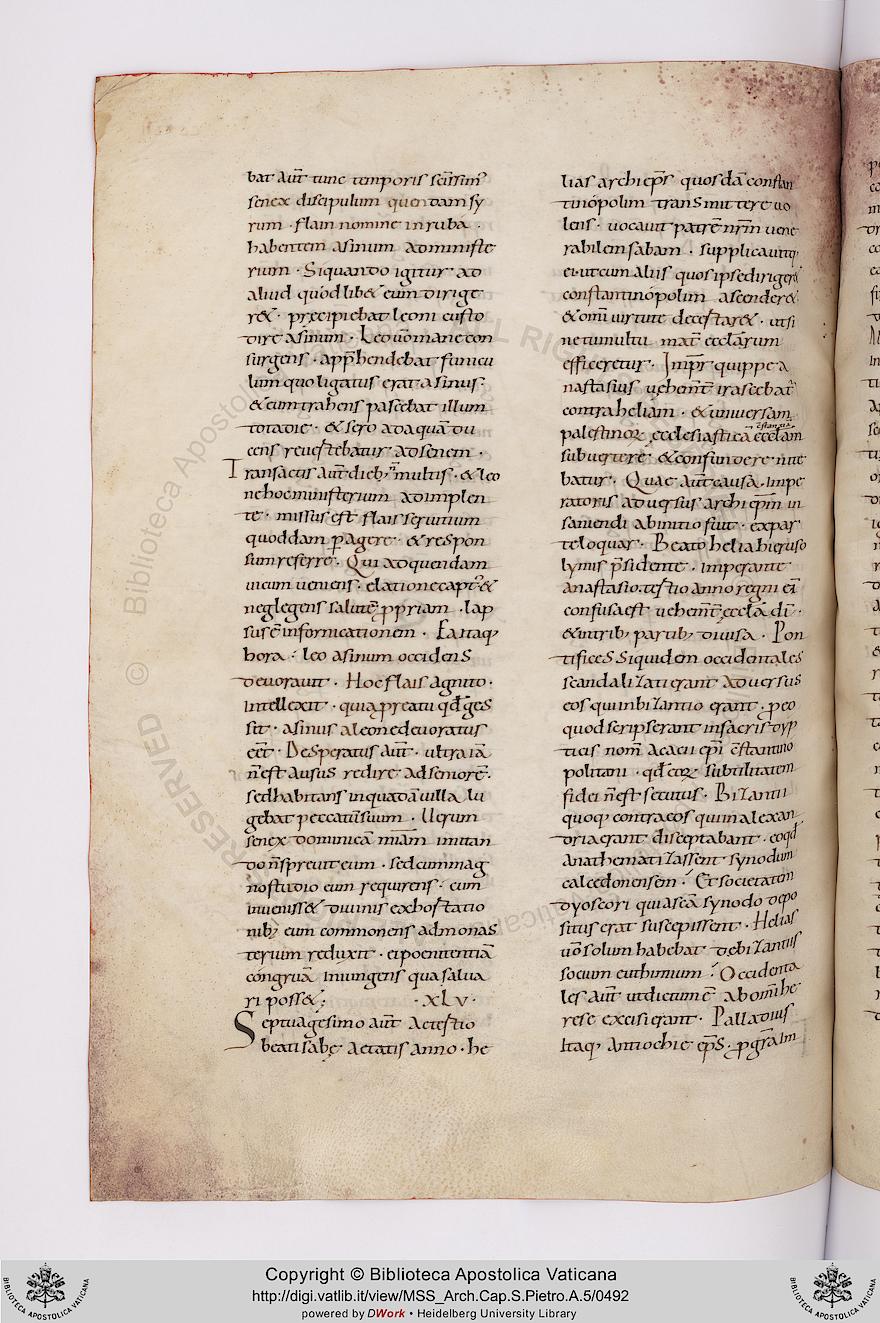 bat aut̄ tunc temporis sc̄issim᾽
senex discipulum quendam sy
rum · flain nomine in ruba ·
habentem asinum ad ministe
rium · Si quando igitur ad
aliud quodlib& eum dirige
r& · precipiebat leoni custo
dire asinum · Leo uō mane con
surgens · app̄hendebat funicu
lum quo ligatus erat asinus ·
& eum trahens pascebat illum
tota die · & sero ad aquā du
cens reuertebatur ad senem ·
Transactis aut̄ dieb; multis · & leo
ne hoc ministerium adimplen
te · missus est flais seruitium
quoddam ꝑagere · & respon
sum referre · Qui ad quendam
uicum ueniens · elatione capt᾽ &
neglegens salutē ꝓpriam · lap
sus ē in fornicationem · Ea itaq;
hora · leo asinum occidens
deuorauit · Hoc flais agnito ·
intellexit · quia ꝓ reatu qd̄ ges
sit · asinus a leone deuoratus
eēt · Desperatus aut̄ · ultra iā
n̄ est ausus redire ad seniorē ·
sed habitans in quadā uilla lu
gebat peccatū suum · Uerum
senex dominicā miām imitan
do n̄ spreuit eum · sed cum mag
no studio eum requirens · cum
inueniss& diuinis exhortatio
nib; eum commonens ad monas
terium reduxit · ei poenitentiā
congruā iniungens qua salua
ri poss& · · XLV ·
Septuagesimo aut̄ ac tertio
beati sabę aetatis anno · he
lias archiep̄s quosdā constan
tinopolim transmittere uo
lens · uocauit patrē nr̄m uene
rabilem sabam · supplicauitq;
ei · ut cum aliis quos ipse diriger&
constantinopolim ascender&
& omi uirtute decertar& · ut si
ne tumultu mat̄ ecclārum
efficeretur · Imp̄r quippe a
nastasius uehement̄ irascebat̄
contra heliam · & uniuersam
palestinoꝝ ecclesiasticā ecclām
subuertere · & confundere nite
batur · Quae aut̄ causa · impe
ratoris aduersus archiep̄m in
saniendi ab initio fuit · ex par
te loquar · Beato helia hieruso
lymis p̄sidente · imperante
anastasio · tertio anno regni ei᾽
confusa est uehement̄ ecclā dī ·
& in trib; partib; diuisa · Pon
tifices siquidem occidentales
scandalizati erant aduersus
eos qui in bizantio erant · ꝓ eo
quod scripserant in sacris dyp
ticis nom̄ acacii ep̄i c̄stantino
politani · qd̄ eoꝝ subtilitatem
fidei n̄ est secutus · Bizantii
quoq; contra eos qui in alexan
dria erant disceptabant · eo qd̄
anathematizassent synodum
calcedonensem · Et societatem
dyoscori qui a scā synodo depo
situs erat suscepissent · Helias
uō solum habebat de bizantiis
socium euthimum · Occidenta
les aut̄ ut dictum ē ab omī he
rese excisi erant · Palladius
itaq; antiochie ep̄s · ꝓ gr̄a im
Copyright © Biblioteca Apostolica Vaticana
http://digi.vatlib.it/view/MSS_Arch.Cap.S.Pietro.A.5/0492
powered by DWork • Heidelberg University Library